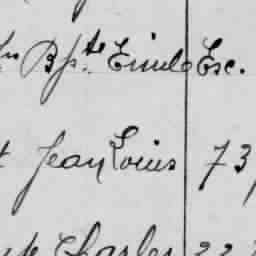 Bpte Emile Esc.
Jean Louis 73
Charles 22